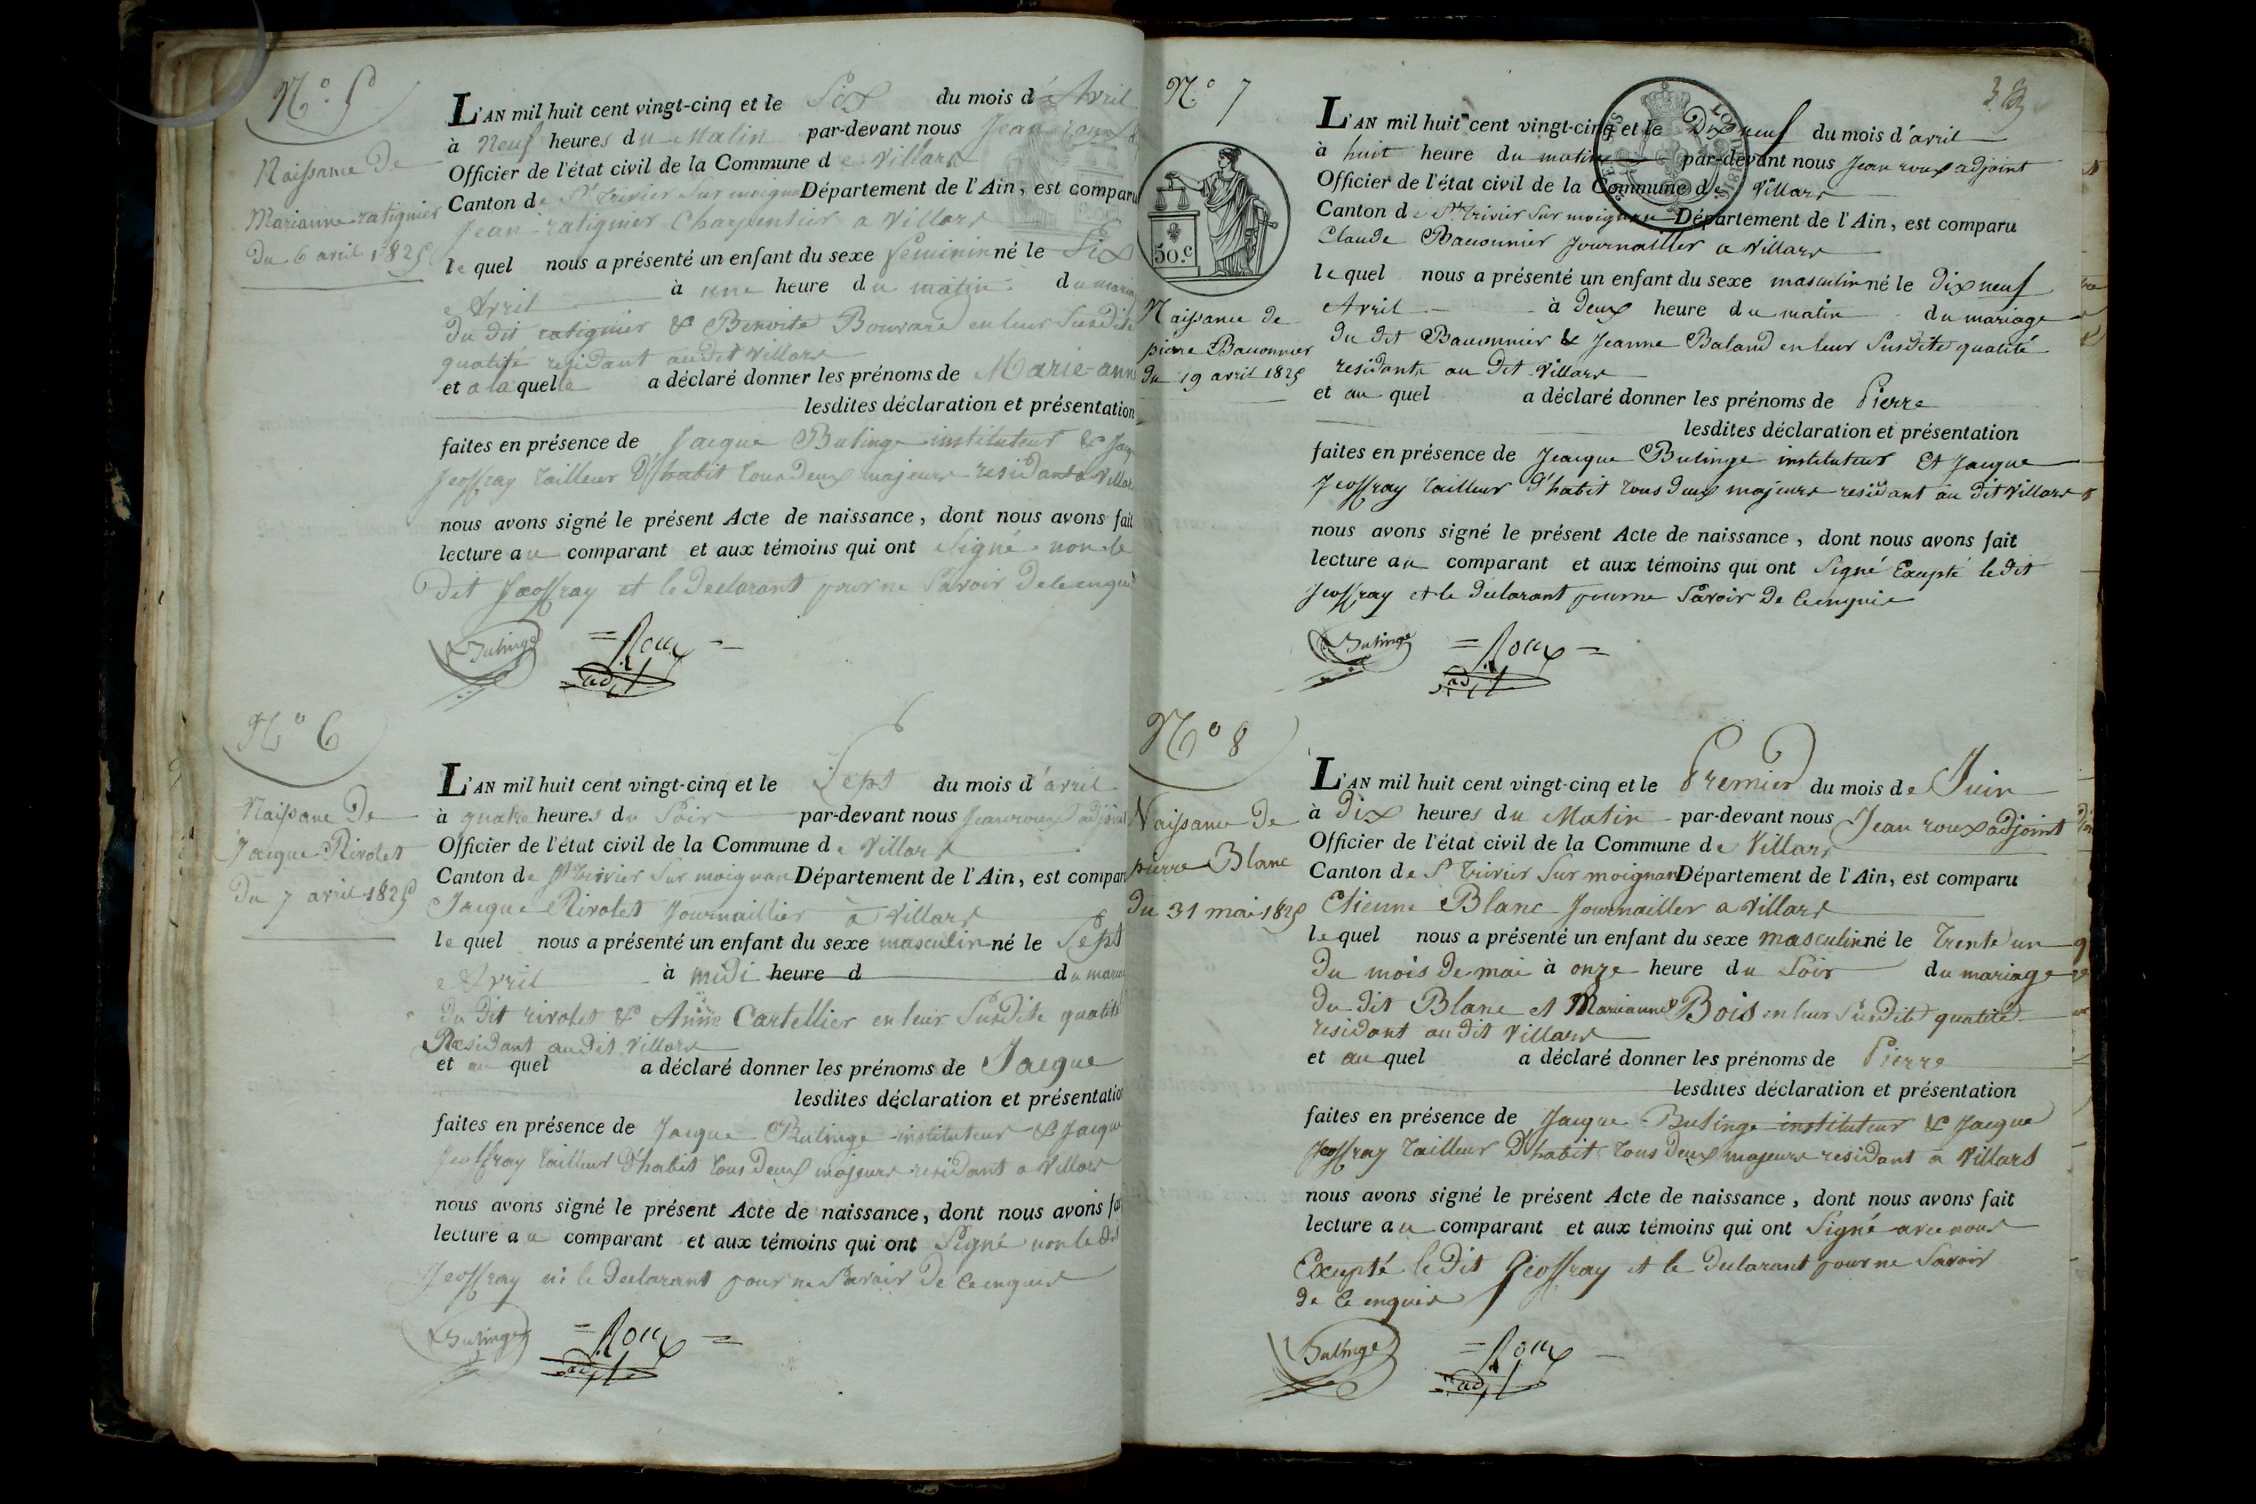 N.° 5
Naissance De
Marianne ratignier
Du 6 avril 1825
L'AN mil huit cent vingt-cinq et le Six du mois d'Avril
à Neuf heures du Matin par-devant nous Jean roux
Officier de l'état civil de la Commune de Villars
Canton de St trivier Sur moignan Département de l'Ain, est comparu
Jean ratignier Charpentier a Villars
le quel nous a présenté un enfant du sexe feminin né le Six
Avril à une heure du matin du mariage
du dit ratignier & Benoite Bouvard en leur Susdite
qualité residant au dit Villars
et a la quelle a déclaré donner les prénoms de Marie-anne
lesdites déclaration et présentation
faites en présence de Jacque Bulinge instituteur & Jacque
Jeoffray tailleur D'habit tous Deux majeurs residant a Villars
nous avons signé le présent Acte de naissance, dont nous avons fait
lecture au comparant et aux témoins qui ont Signé non le
Dit Jeoffray et le Declarant pour ne Savoir De ce enquis
Bulinge = Roux =
adjt
N° 6
Naissance De
Jacque Rivolet
Du 7 avril 1825
L'AN mil huit cent vingt-cinq et le Sept du mois d'avril
à quatre heures du Soir par-devant nous Jean roux adjoint
Officier de l'état civil de la Commune de Villars
Canton de St trivier Sur moignan Département de l'Ain, est comparu
Jacque Rivolet Journaillier à Villars
le quel nous a présenté un enfant du sexe masculin né le Sept
Avril à midi heure d du mariage
du dit rivolet & Anne Cartellier en leur Susdite qualité
Residant au dit Villars
et au quel a déclaré donner les prénoms de Jacque
lesdites déclaration et présentation
faites en présence de Jacque Bulinge instituteur & Jacque
Jeoffray tailleur D'habit tous Deux majeurs residant a Villars
nous avons signé le présent Acte de naissance, dont nous avons fait
lecture au comparant et aux témoins qui ont Signé non le dit
Jeoffray ni le Declarant pour ne Savoir De ce enquis
Bulinge = Roux =
adjt
N° 7
50.c
Naissance de
pierre Bauonnier
du 19 avril 1825
L'AN mil huit cent vingt-cinq et le Dix neuf du mois d'avril
à huit heure du matin par-devant nous Jean roux adjoint
Officier de l'état civil de la Commune de Villars
Canton de St trivier Sur moignan Département de l'Ain, est comparu
Claude Bauonnier Journaillier a Villars
le quel nous a présenté un enfant du sexe masculin né le Dix neuf
Avril à Deux heure du matin du mariage
du dit Bauonnier & Jeanne Baland en leur Susdite qualité
residants au dit Villars
et au quel a déclaré donner les prénoms de Pierre
lesdites déclaration et présentation
faites en présence de Jacque Bulinge instituteur Et Jacque
Jeoffray tailleur D'habit tous Deux majeurs residant au dit Villars
nous avons signé le présent Acte de naissance, dont nous avons fait
lecture au comparant et aux témoins qui ont Signé Excepté le Dit
Jeoffray et le declarant pour ne Savoir De ce enquis
Bulinge = Roux =
adjt
N° 8
Naissance De
pierre Blanc
du 31 mai 1825
L'AN mil huit cent vingt-cinq et le Premier du mois de Juin
à Dix heures du Matin par-devant nous Jean roux adjoint
Officier de l'état civil de la Commune de Villars
Canton de St trivier Sur moignan Département de l'Ain, est comparu
Etienne Blanc Journailler a Villars
le quel nous a présenté un enfant du sexe masculin né le trente un
du mois de mai à onze heure du Soir du mariage
du dit Blanc et Marianne Bois en leur Susdite qualité
residant au dit Villars
et au quel a déclaré donner les prénoms de Pierre
lesdites déclaration et présentation
faites en présence de Jacque Bulinge instituteur & Jacque
Jeoffray tailleur D'habit tous Deux majeurs residant à Villars
nous avons signé le présent Acte de naissance, dont nous avons fait
lecture au comparant et aux témoins qui ont Signé avec nous
Excepté le Dit Jeoffray et le declarant pour ne Savoir
de ce enquis
Bulinge = Roux
adjt